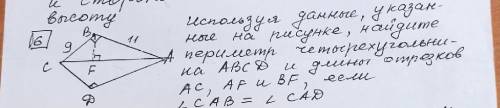 и сторона
высоту
6
B
9
11
C
F
A
D
используя данные, указан-
ные на рисунке, найдите
периметр четырехугольни-
ка ABCD и длины отрезков
AC, AF и BF, если
∠CAB = ∠CAD